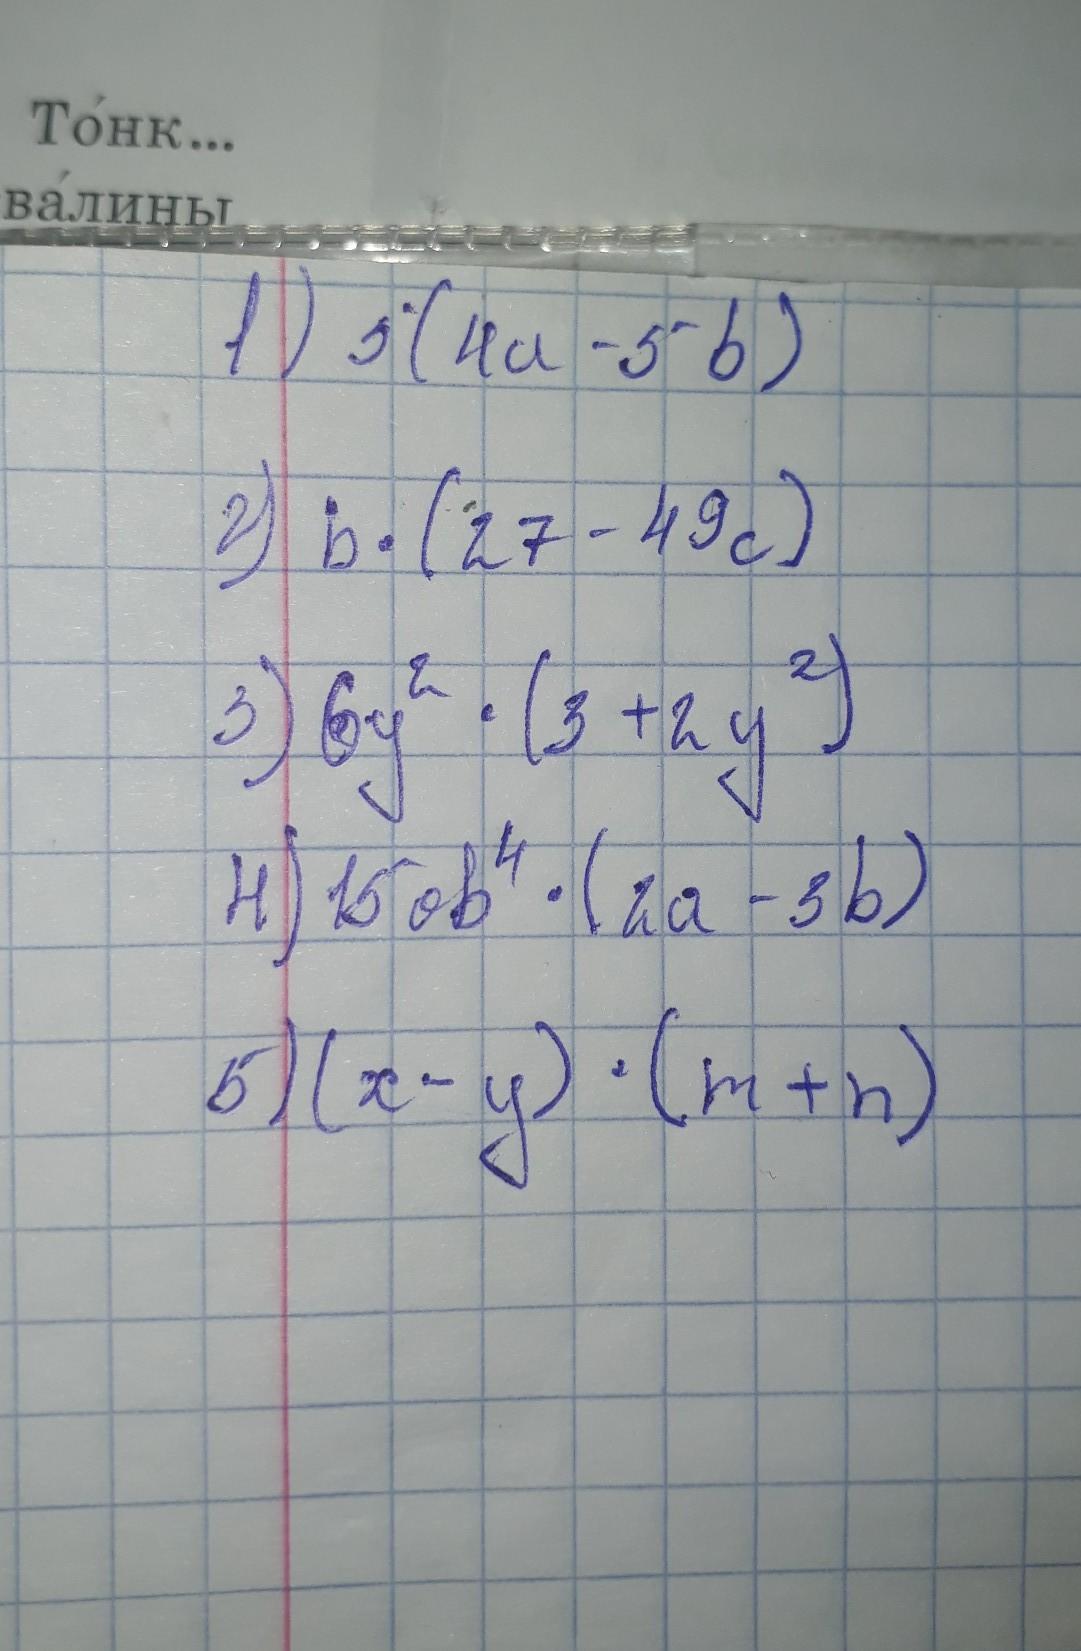 То́нк...
ва́лины
1) 5(4a - 5b)
2) b·(27 - 49c)
3) 6y² · (3 + 2y²)
4) 15ab⁴ · (2a - 3b)
5) (x - y) · (m + n)